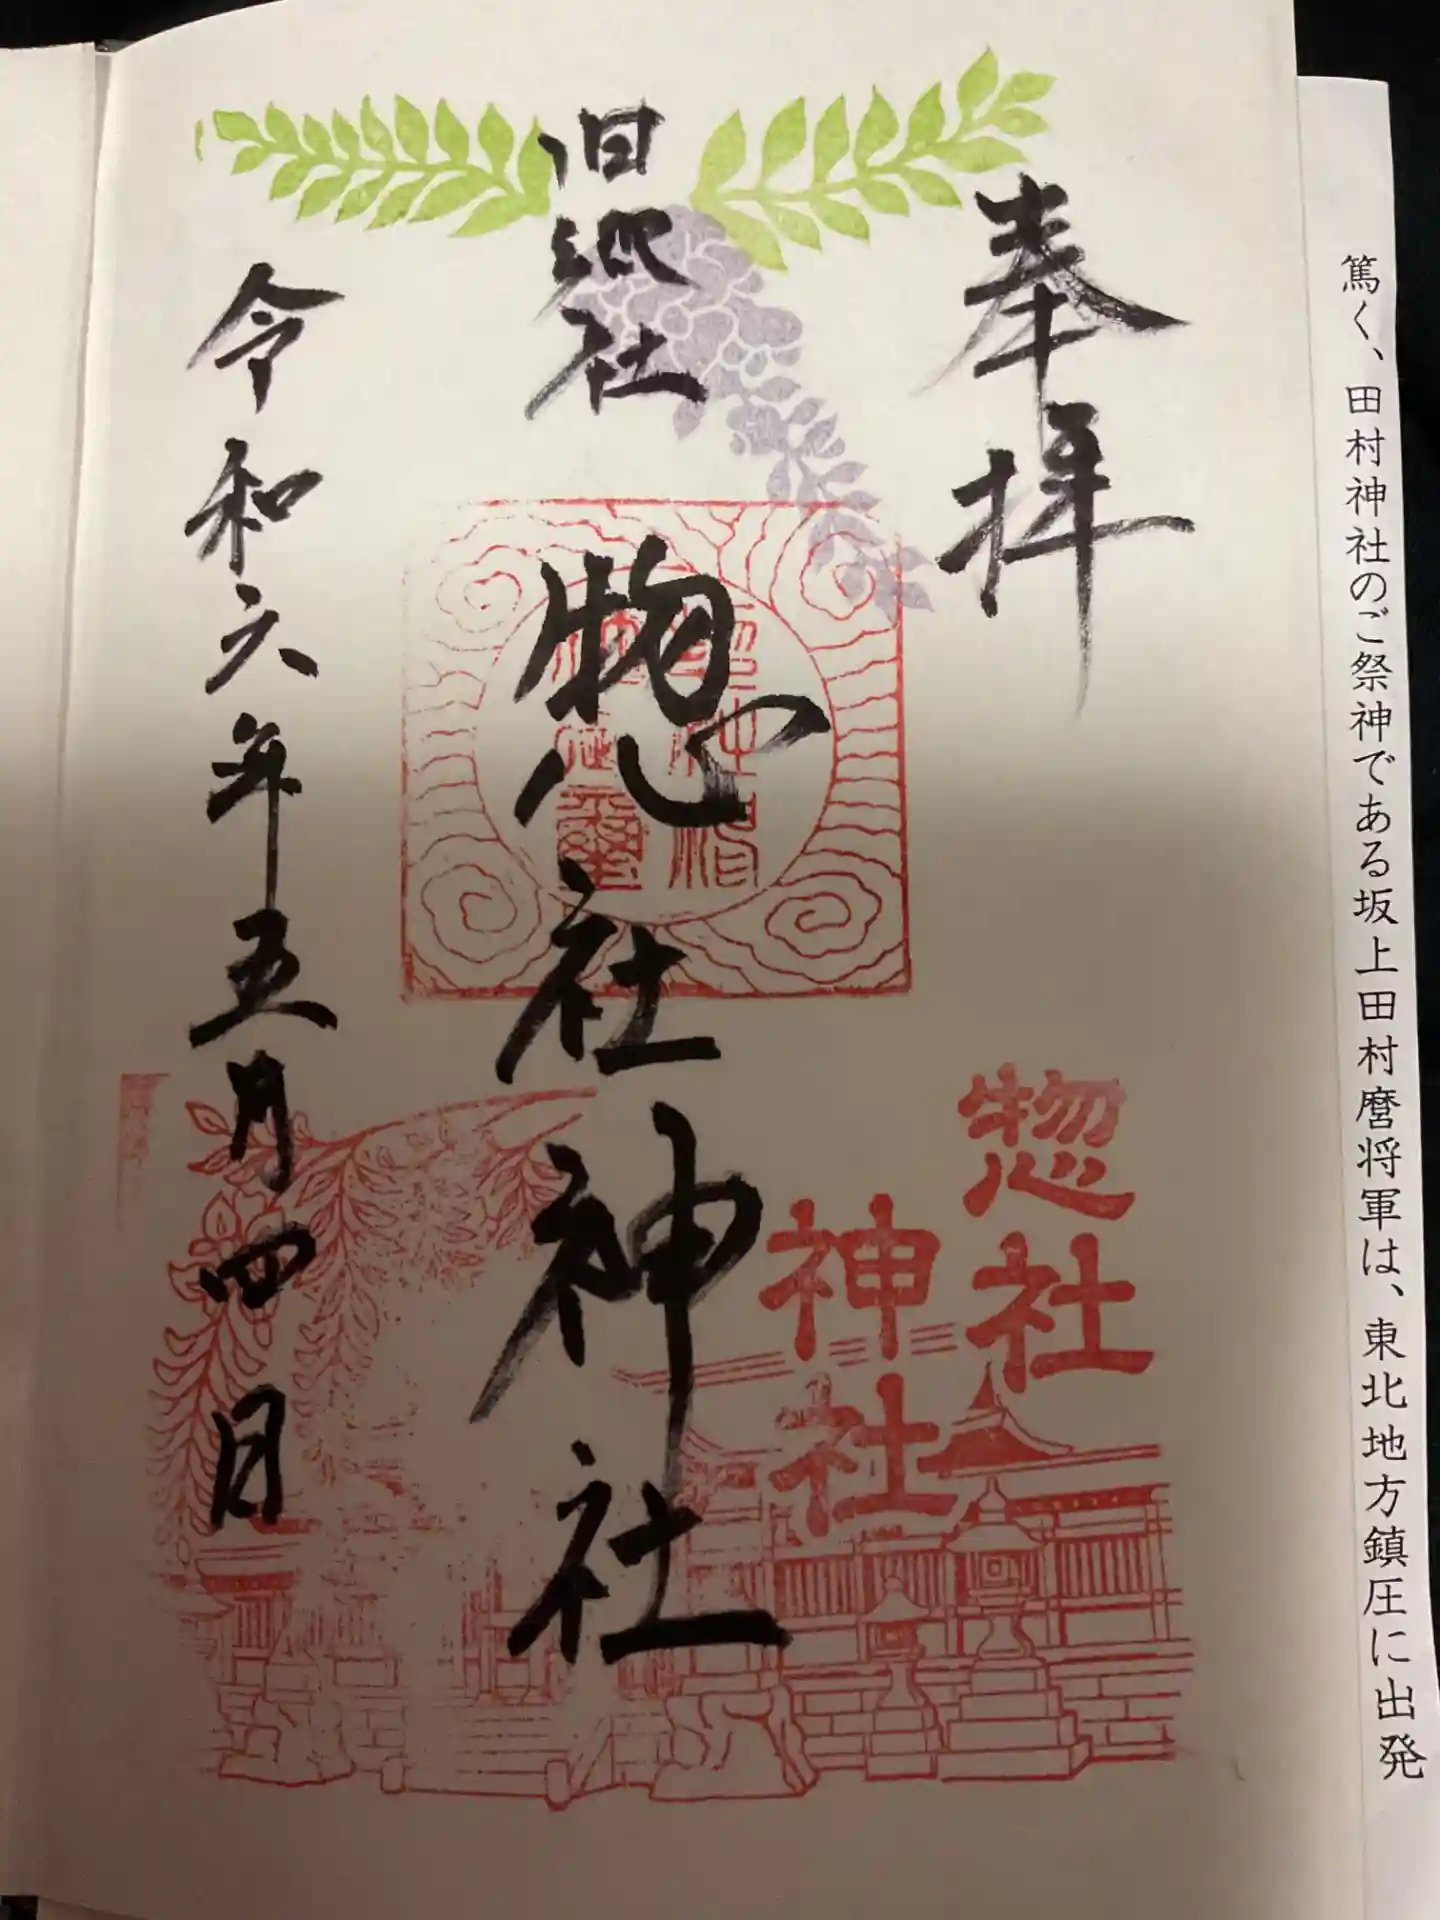 篤く、田村神社のご祭神である坂上田村麿将軍は、東北地方鎮圧に出発
奉拝
旧県社
惣社神社
惣社
神社
令和六年五月四日